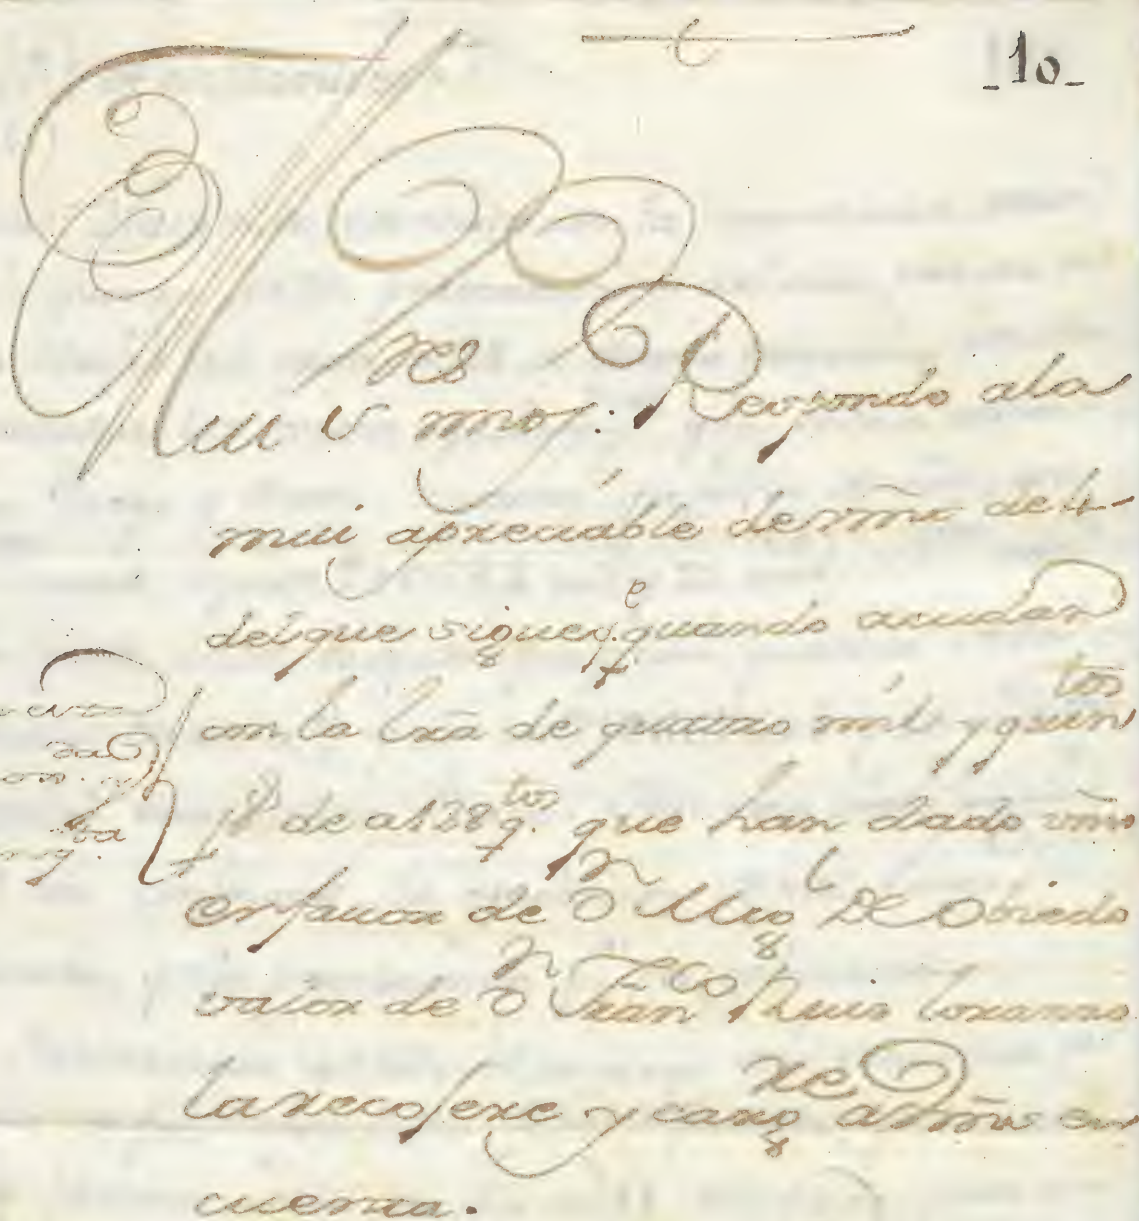 -10-
Mui S.res mios: Respondo a la
mui apreciable de vms de 4
del que sigue, y q.e quando acuden
con la lra de quatro mil y quin.tos
p.s de a 128 q.tos que han dado vms
en favor de D.n Mig.l de Oviedo
valor de D.n Fran.co Ruis Loranno
la recojere y carg.re a vms en
cuenta.